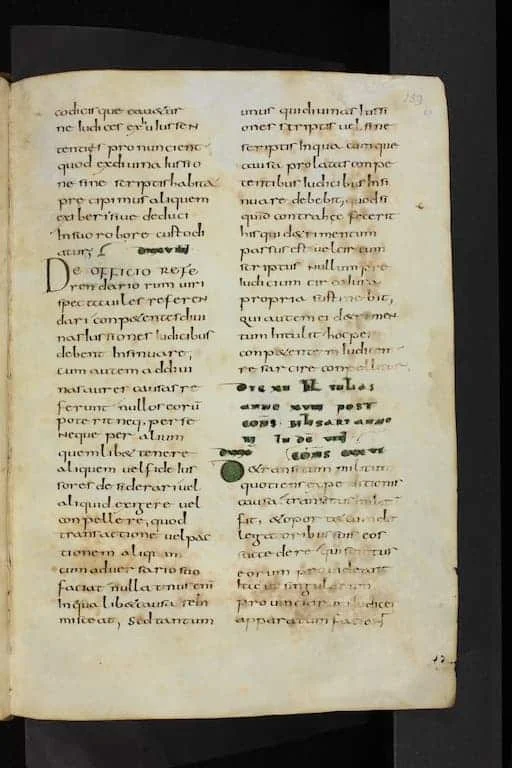 159
codicis que cauetas
ne iudices
tentiis pronuncient
quod ex diuina iussio
ne sine scriptis habita
precipimus aliquem
exiberi siue deduci
In suo robore custodi
De officio refe
rendario rum uiri
spectauiles referen
dari conpetentes diui
nas iussiones Iudicibus
debent Insinuare,
cum autem addiui
nas aures causas re
ferunt nullos eorum
poterit neq. per se
neque per alium
quem libet tenere
aliquem uel fide ius
sores desiderari uel
aliquid exigere uel
conpellere, quod
transactione uel pac
tionem aliquam
cum aduersario suo
faciat nulla
In qua libet causa
misceat, sed tantum
unus quidiuinas iussi
ones scriptis uel sine
scriptis In qua cumque
causa prolatas conpe
tentibus Iudicibus Insi
nuare debebit, quod si
quid contra hec fecerit
his qui detrimentum
passus est uel cir cum
scriptus nullum pre
Iudicium
propria sustinebit,
qui autem ei detrimen
tum Intulit hoc per
conpetentem Iudicem
re sarcire
die XII KL iulias
anno XVIII post
cons belisari anno
cons CXXVI
transitum militum
quotiens expeditionis
causa transitus mili
fit, et oportet
legatoribus suis eos
succedere qui
eorum prouideant
hic ut singularem
prouinciarum Iudices
apparatum